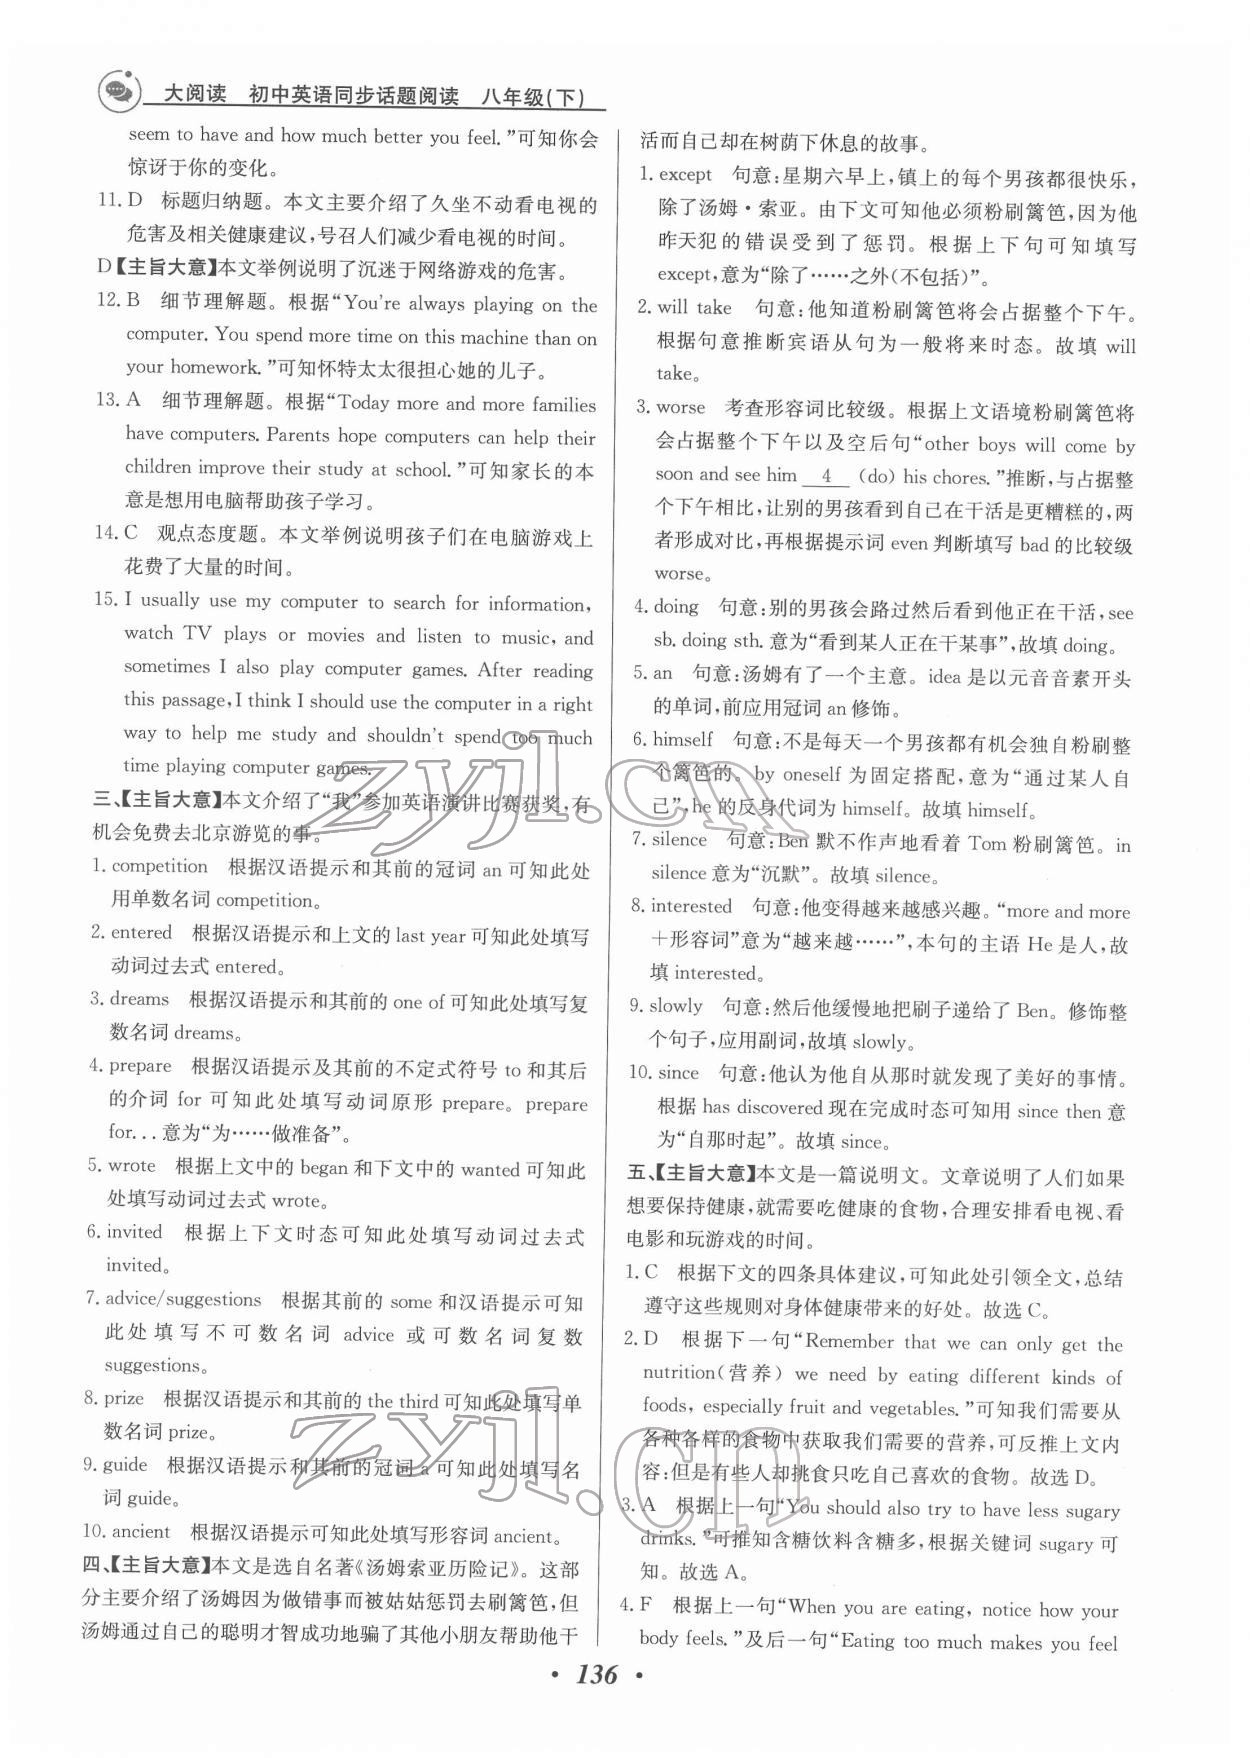 大阅读 初中英语同步话题阅读 八年级(下)
seem to have and how much better you feel.”可知你会
惊讶于你的变化。
11. D 标题归纳题。本文主要介绍了久坐不动看电视的
危害及相关健康建议,号召人们减少看电视的时间。
D【主旨大意】本文举例说明了沉迷于网络游戏的危害。
12. B 细节理解题。根据“You're always playing on the
computer. You spend more time on this machine than on
your homework.”可知怀特太太很担心她的儿子。
13. A 细节理解题。根据“Today more and more families
have computers. Parents hope computers can help their
children improve their study at school.”可知家长的本
意是想用电脑帮助孩子学习。
14. C 观点态度题。本文举例说明孩子们在电脑游戏上
花费了大量的时间。
15. I usually use my computer to search for information,
watch TV plays or movies and listen to music, and
sometimes I also play computer games. After reading
this passage, I think I should use the computer in a right
way to help me study and shouldn't spend too much
time playing computer games.
三、【主旨大意】本文介绍了“我”参加英语演讲比赛获奖,有
机会免费去北京游览的事。
1. competition 根据汉语提示和其前的冠词 an 可知此处
用单数名词 competition。
2. entered 根据汉语提示和上文的 last year 可知此处填写
动词过去式 entered。
3. dreams 根据汉语提示和其前的 one of 可知此处填写复
数名词 dreams。
4. prepare 根据汉语提示及其前的不定式符号 to 和其后
的介词 for 可知此处填写动词原形 prepare。prepare
for... 意为“为……做准备”。
5. wrote 根据上文中的 began 和下文中的 wanted 可知此
处填写动词过去式 wrote。
6. invited 根据上下文时态可知此处填写动词过去式
invited。
7. advice/suggestions 根据其前的 some 和汉语提示可知
此处填写不可数名词 advice 或可数名词复数
suggestions。
8. prize 根据汉语提示和其前的 the third 可知此处填写单
数名词 prize。
9. guide 根据汉语提示和其前的冠词 a 可知此处填写名
词 guide。
10. ancient 根据汉语提示可知此处填写形容词 ancient。
四、【主旨大意】本文是选自名著《汤姆索亚历险记》。这部
分主要介绍了汤姆因为做错事而被姑姑惩罚去刷篱笆,但
汤姆通过自己的聪明才智成功地骗了其他小朋友帮助他干
活而自己却在树荫下休息的故事。
1. except 句意:星期六早上,镇上的每个男孩都很快乐,
除了汤姆·索亚。由下文可知他必须粉刷篱笆,因为他
昨天犯的错误受到了惩罚。根据上下句可知填写
except,意为“除了……之外(不包括)”。
2. will take 句意:他知道粉刷篱笆将会占据整个下午。
根据句意推断宾语从句为一般将来时态。故填 will
take。
3. worse 考查形容词比较级。根据上文语境粉刷篱笆将
会占据整个下午以及空后句“other boys will come by
soon and see him 4 (do) his chores.”推断,与占据整
个下午相比,让别的男孩看到自己在干活是更糟糕的,两
者形成对比,再根据提示词 even 判断填写 bad 的比较级
worse。
4. doing 句意:别的男孩会路过然后看到他正在干活,see
sb. doing sth. 意为“看到某人正在干某事”,故填 doing。
5. an 句意:汤姆有了一个主意。idea 是以元音音素开头
的单词,前应用冠词 an 修饰。
6. himself 句意:不是每天一个男孩都有机会独自粉刷整
个篱笆的。by oneself 为固定搭配,意为“通过某人自
己”,he 的反身代词为 himself。故填 himself。
7. silence 句意:Ben 默不作声地看着 Tom 粉刷篱笆。in
silence 意为“沉默”。故填 silence。
8. interested 句意:他变得越来越感兴趣。“more and more
+形容词”意为“越来越……”,本句的主语 He 是人,故
填 interested。
9. slowly 句意:然后他缓慢地把刷子递给了 Ben。修饰整
个句子,应用副词,故填 slowly。
10. since 句意:他认为他自从那时就发现了美好的事情。
根据 has discovered 现在完成时态可知用 since then 意
为“自那时起”。故填 since。
五、【主旨大意】本文是一篇说明文。文章说明了人们如果
想要保持健康,就需要吃健康的食物,合理安排看电视、看
电影和玩游戏的时间。
1. C 根据下文的四条具体建议,可知此处引领全文,总结
遵守这些规则对身体健康带来的好处。故选 C。
2. D 根据下一句“Remember that we can only get the
nutrition(营养) we need by eating different kinds of
foods, especially fruit and vegetables.”可知我们需要从
各种各样的食物中获取我们需要的营养,可反推上文内
容:但是有些人却挑食只吃自己喜欢的食物。故选 D。
3. A 根据上一句“You should also try to have less sugary
drinks.”可推知含糖饮料含糖多,根据关键词 sugary 可
知。故选 A。
4. F 根据上一句“When you are eating, notice how your
body feels.”及后一句“Eating too much makes you feel
· 136 ·
zyjl.cn
zyjl.cn